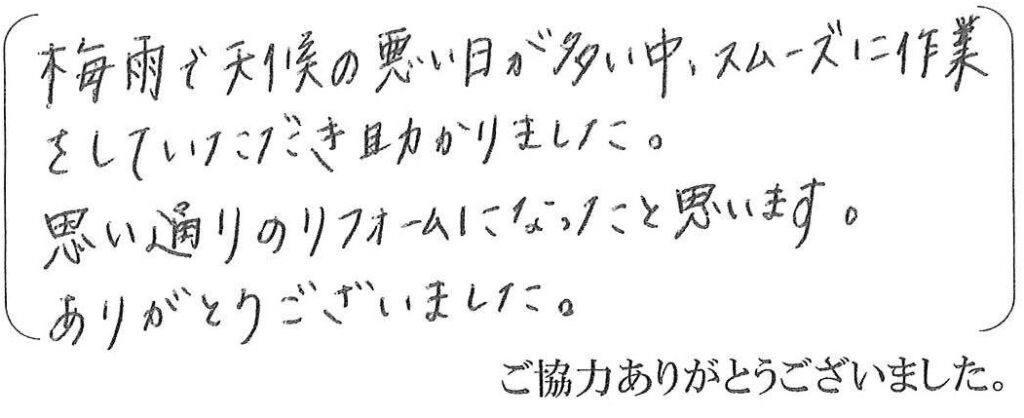 梅雨で天候の悪い日が多い中、スムーズに作業
をしていただき助かりました。
思い通りのリフォームになったと思います。
ありがとうございました。
ご協力ありがとうございました。